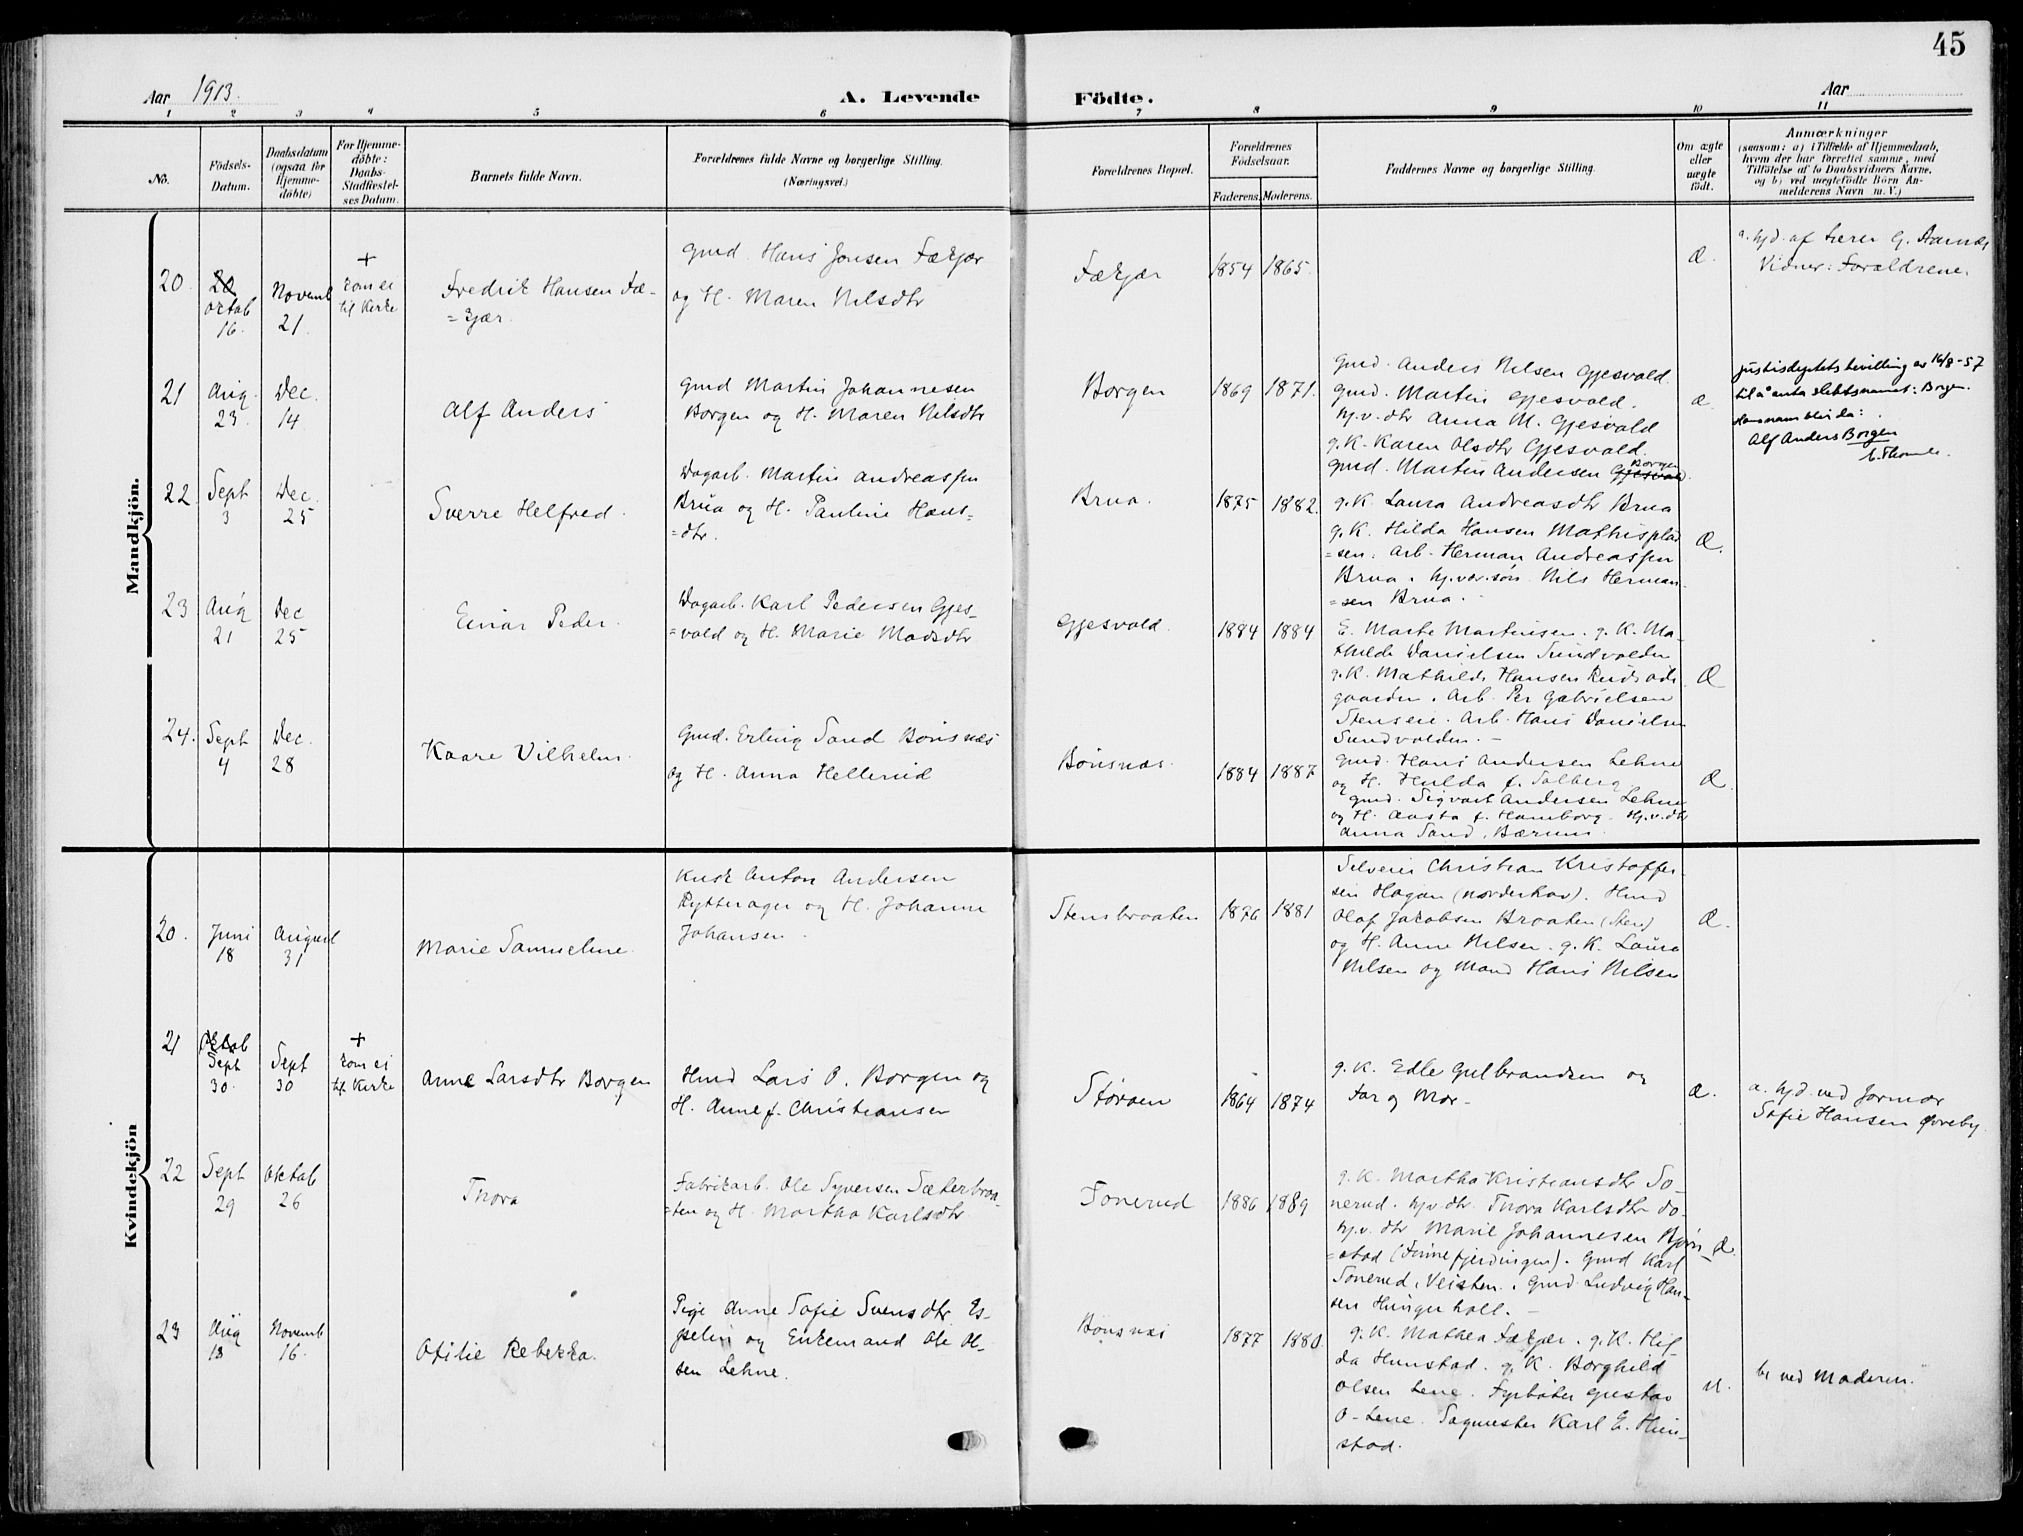 45
Aar 1913.
A. Levende Födte.
Aar
1 2 3 4 5 6 7 8 9 10 11
No.
Födsels-
Datum.
Daabsdatum
(ogsaa for
Hjemme-
döbte)
For Hjemme-
döbte:
Daabs-
Stadfæstel-
ses Datum.
Barnets fulde Navn.
Forældrenes fulde Navne og borgerlige Stilling.
(Næringsvei.)
Forældrenes Bopæl.
Forældrenes
Födselsaar.
Faderens. Moderens.
Faddernes Navne og borgerlige Stilling.
Om ægte
eller
uægte
födt.
Anmærkninger
(saasom: a) i Tilfælde af Hjemmedaab,
hvem der har forrettet samme, med
Tilföielse af to Daabsvidners Navne,
og b) ved uægtefödte Börn An-
melderens Navn m. V.)
Mandkjön.
20.
20
oktob
16.
Novemb
21.
+
kom ei
til Kirke
Fredrik Hansen Fæ-
=kjær.
Gmd. Hans Jonsen Fækjær
og H. Maren Nilsdtr
Fækjær
1854 1865.
Æ.
a. hjd. af Lærer G. Aarnæs
Vidner: Forældrene.
21
Aug.
23.
Dec.
14
Alf Anders
Gmd Martin Johannesen
Borgen og H. Maren Nilsdtr
Borgen
1869 1871.
Gmd. Anders Nilsen Gjesvold.
Gmd. Martin Gjesvold.
hj.v. dtr Anna M. Gjesvold
g. K. Karen Olsdtr Gjesvold.
Gmd. Martin Andersen Gjesvold Borgen
Æ.
Justisdeptets bevilling av 16/8-57
til å anta slektsnavnet: Borgen.
Hans navn blir da:
Alf Anders Borgen
22.
Sept
3
Dec.
25
Sverre Helfred.
Dagarb. Martin Andreassen
Brua og H. Pauline Hans=
=dtr.
Brua.
1875 1882.
g. K. Laura Andreasdtr Brua
g. K. Hilda Hansen Mathisplad
=sen. Arb. Herman Andreassen
Brua. hj.vær. søn Nils Herman-
=sen Brua.
Æ.
23
Aug
21
Dec
25
Einar Peder.
Dagarb. Karl Pedersen Gjes-
=vold og H. Marie Madsdtr
Gjesvold.
1884 1884
E. Marte Martinsen. g. K. Ma-
thilde Danielsen Sundvolden
g. K. Mathilde Hansen Ruds øde
gaarden. Arb. Per Gabrielsen
Stensen. Arb. Hans Danielsen
Sundvolden. -
Æ
24.
Sept
4
Dec.
28
Kaare Vilhelm.
Gmd. Erling Sand Bønsnæs
og H. Anna Hellerud
Bønsnæs.
1884 1887
Gmd. Hans Andersen Lehne
og H. Hulda f. Solberg
gmd. Sigvart Andersen Lehne
og H. Aasta f. Hamborg. Hj.v.dtr
Anna Sand, Bærum.
Æ.
Kvindekjön
20.
Juni
18
August
31
Marie Samueline.
Kusk Anton Andersen
Rytterager og H. Johanne
Johansen.
Stensbraaten
1876 1881
Selveier Christian Kristoffer-
sen Hagan (Norderhov). Hmd
Olaf Jakobsen Braaten (Sten)
og H. Anne Nilsen. g. K. Laura
Nilsen og Mand Hans Nilsen
Æ.
21
Oktob
Sept
30.
Sept
30
+
kom ei
til Kirke
Anne Larsdtr Borgen
Hmd Lars O. Borgen og
H. Anne f. Christiansen
Støroen
1864 1874
g. K. Edle Gulbrandsen og
Far og Mor -
Æ.
a. hjd. ved Jormor
Sofie Hansen Øvreby.
22
Sept
29
Oktob
26
Thora
Fabrikarb. Ole Syversen Sæterbraa-
=ten og H. Martha Karlsdtr
Tonerud
1886 1889
g. K. Martha Kristiansdtr To-
nerud. hj.v.dtr. Thora Karlsdtr do.
hj.v. dtr Marie Johannesen Bjørn
=stad (Finnefjerdingen). Gmd Karl
Tonerud, Veisten. Gmd. Ludvig Han-
sen Hungerholt. -
Æ.
23
Aug
18
Novemb
16.
Otilie Rebekka.
Pige Anne Sofie Svensdtr Es-
pselin og Enkemand Ole Ol-
sen Lehne.
Bønsnæs
1877 1880.
g. K. Mathea Fækjær. g. K. Hil-
da Hunstad. g. K. Borghild
Olsen Lene. Fyrbøter Gustav
O- Lene. Sagmester Karl E. Hun-
stad.
U.
b, ved Moderen.